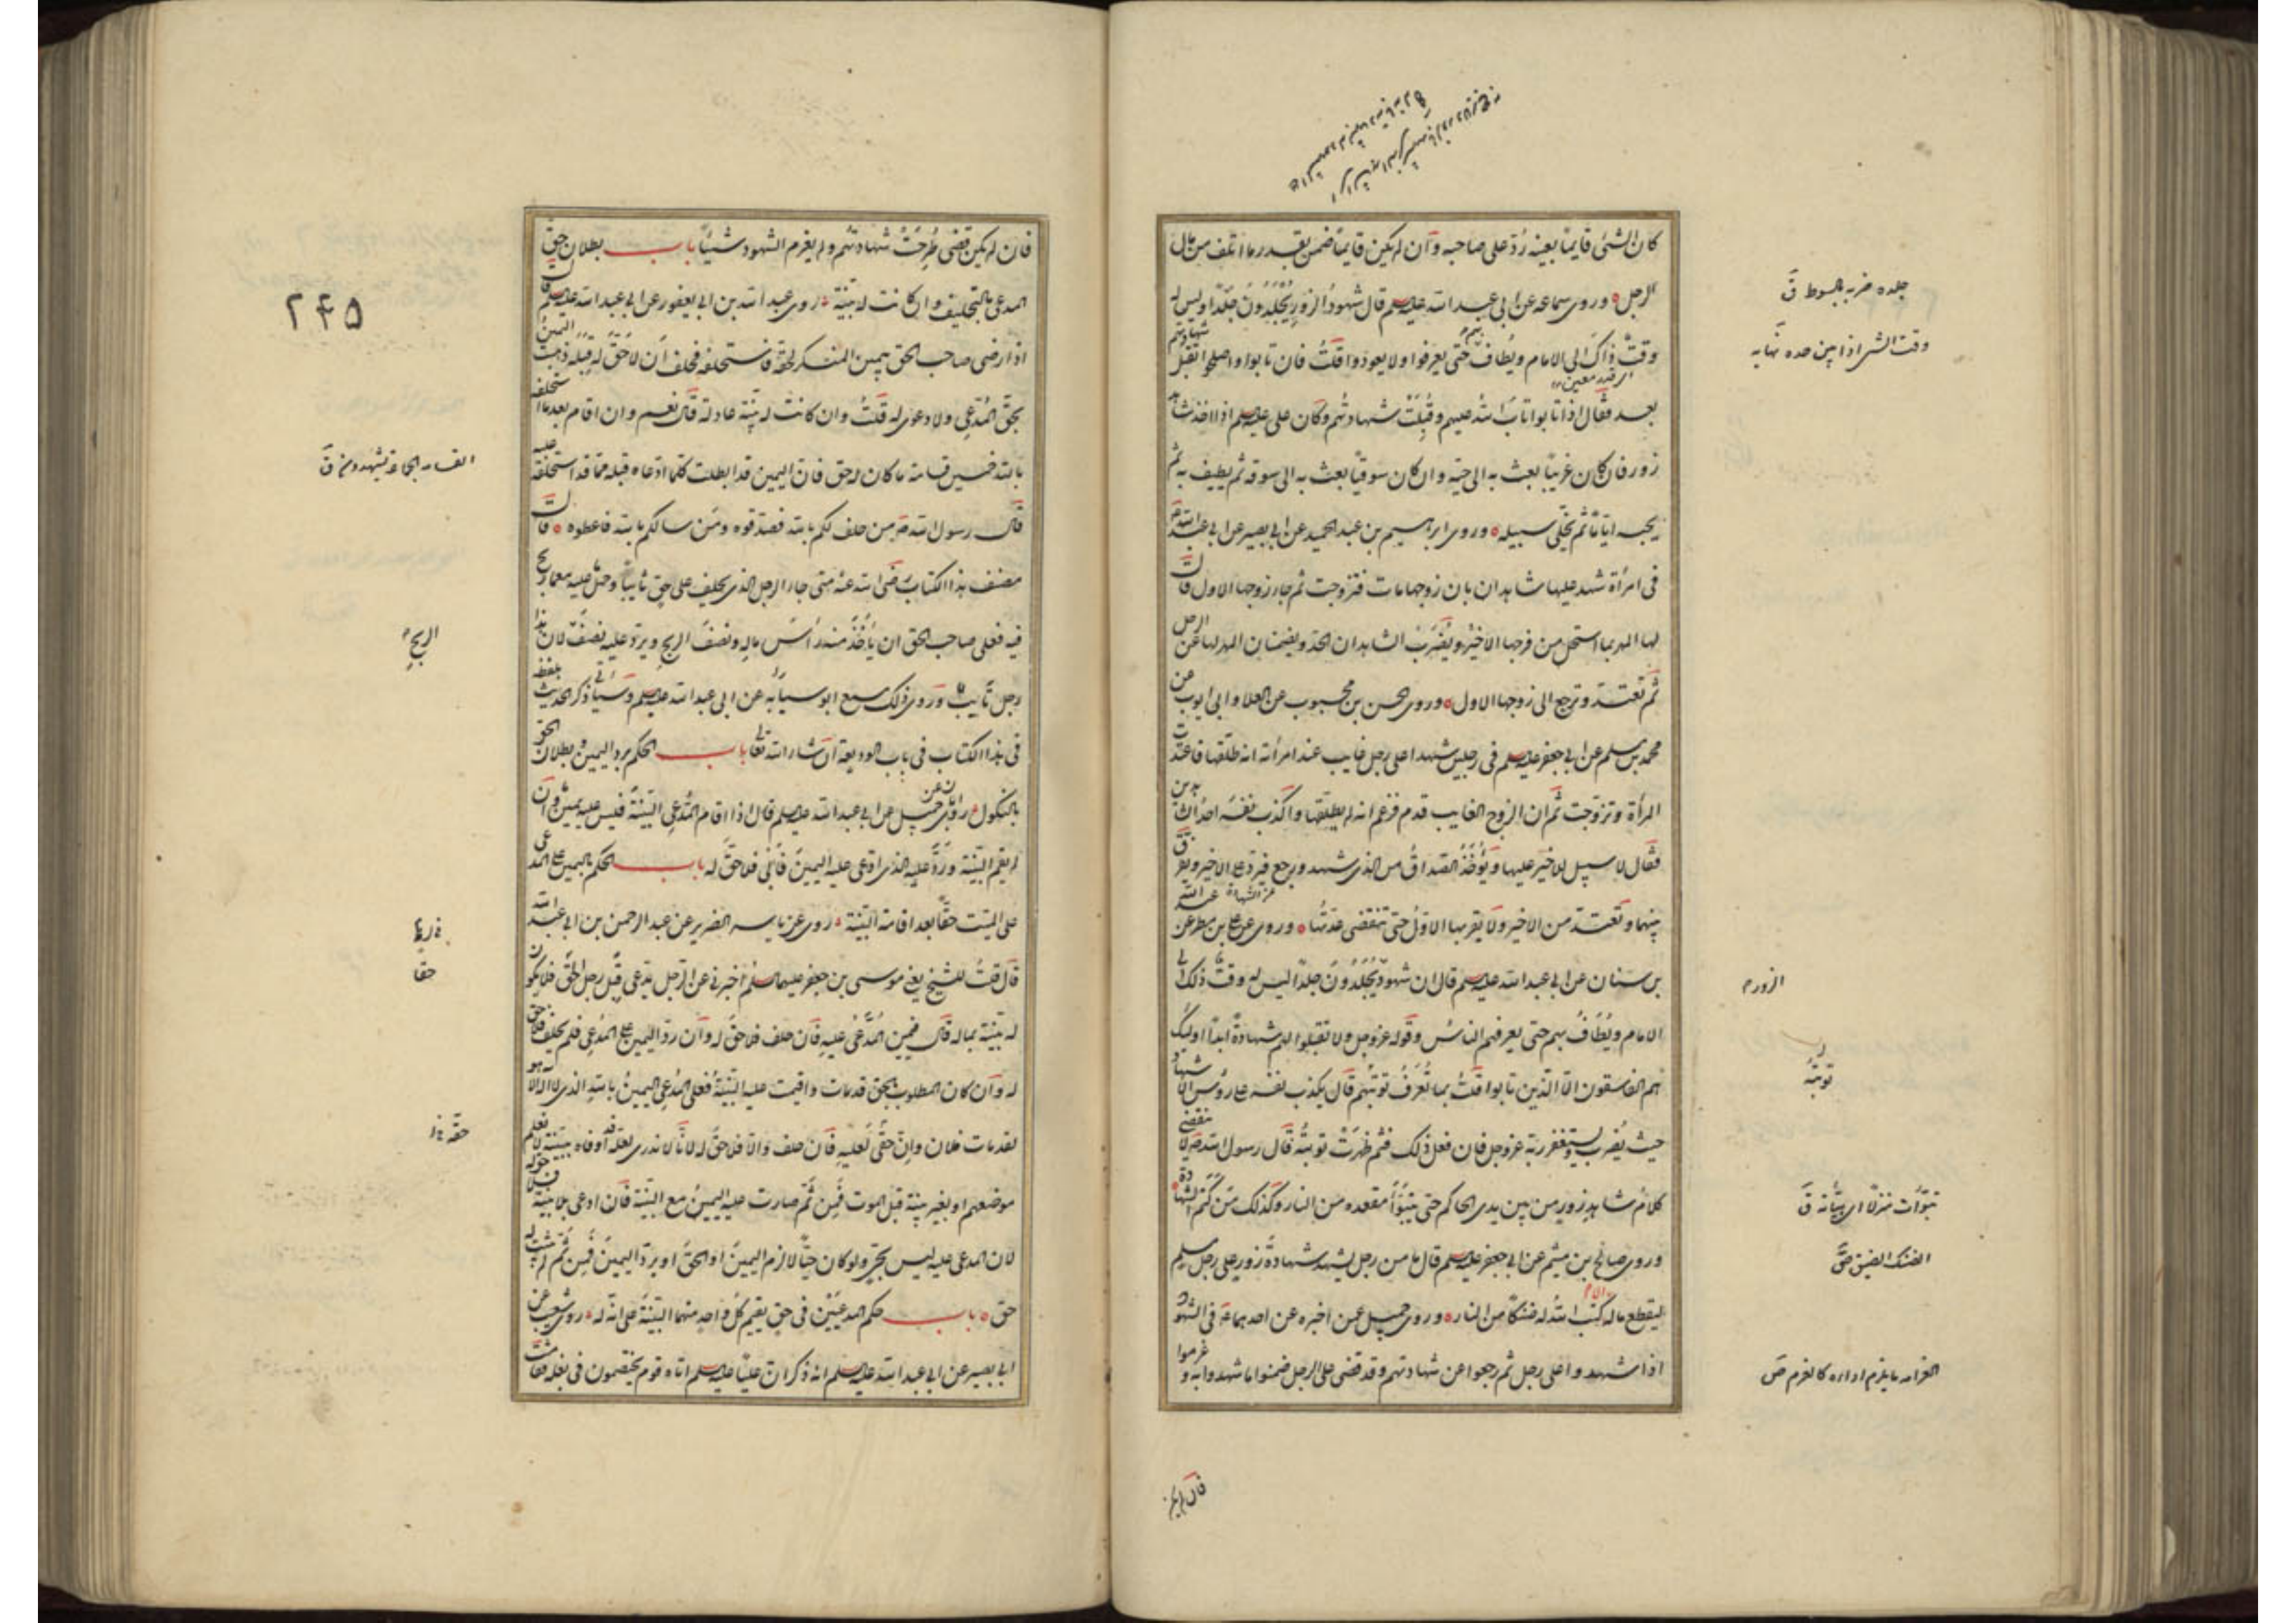 كان الشئ قايما بعينه رُدّ على صاحبه وان لم يكن قايما ضمن بقدر ما اتلف من مال
الرجل وروى سماعه عن ابى عبد الله عليه السلم قال شهود الزور يُجْلَدُونَ جَلْدًا وليس له
وقتٌ ذاك الى الامام ويُطاف بهم حتى يعرفوا ولا يعودوا قلتُ فان تابوا واصلحوا تقبل شهادتهم
بعد فقال اذا تابوا تابَ اللهُ عليهم وقُبِلَتْ شهادتُهم وكان على عليه السلم اذا اخذ شاهد
زور فان كان غريبًا بعث به الى حيّه وان كان سوقيًا بعث به الى سوقه ثم يطيف به ثم
يحبسه ايّامًا ثم يخلّى سبيله وروى ابرهيم بن عبد الحميد عن ابى بصير عن ابى عبد الله
فى امرأة شهد عليها شاهدان بان زوجها مات فتزوجت ثم جاء زوجها الاول قال
لها المهر بما استحل من فرجها الاخير ويُضْرَبُ الشاهدان الحدّ ويضمنان المهر لها عن الرجل
ثم تعتدّ وترجع الى زوجها الاول وروى الحسن بن محبوب عن العلا وابى ايوب عن
محمد بن مسلم عن ابى جعفر عليه السلم فى رجلين شهدا على رجل غايب عند امرأته انه طلّقها فاعتدت
المرأة وتزوّجت ثم ان الزوج الغايب قدم فزعم انه لم يطلّقها واكذب نفسه احد الشاهدين
فقال لا سبيل للاخير عليها ويُؤْخَذُ الصداقُ من الذى شهد ورجع فيردّ على الاخير ويفرق
بينهما وتعتدّ من الاخير ولا يقربها الاوّلُ حتى تنقضى عدّتُها وروى عن على بن مطر عن عبد الله
بن سنان عن ابى عبد الله عليه السلم قال ان شهود يُجْلَدُونَ جلدًا ليس له وقتٌ ذلك الى
الامام ويُطَافُ بهم حتى يعرفهم الناسُ وقوله عز وجل ولا تقبلوا لهم شهادةً ابدًا اوليك
هم الفاسقون الّا الّذين تابوا قلتُ بما تُعْرَفُ توبتُهم قال يكذب نفسه على رؤس الاشهاد
حيث يُضرب ويستغفر ربّه عز وجل فان فعل ذلك فثم ظهرَتْ توبتُه قال رسول الله ص لا ينقضى
كلامُ شاهدِ زورٍ من بين يدى الحاكم حتى يتبوّأ مقعده من النار وكذلك مَن كتم الشهادة
وروى صالح بن ميثم عن ابى جعفر عليه السلم قال ما من رجل يشهد شهادةَ زورٍ على رجل مسلم
ليقطع ماله الا كتب اللهُ له ضنكًا من النار وروى جميل عمن اخبره عن احدهما ع فى الشهود
اذا شهدوا على رجل ثم رجعوا عن شهادتهم وقد قضى على الرجل ضمنوا ما شهدوا به وغرموا
جلده ضربه بالسوط ق
وقت الشئ اذا بين حده نهايه
الزور م
توبته
تبوّأت منزلا اى
الضنك الضيق ص
الغرامه ما يلزم اداؤه كالغرم ص
فان لم يكن
فان لم يكن قضى طُرِحَتْ شهادتهم ولم يغرم الشهود شيئًا باب بطلان حق
المدعى بالتحليف وان كانت له بيّنة روى عبد الله بن ابى يعفور عن ابى عبد الله عليه السلم قال
اذا رضى صاحب الحق بيمين المنكر لحقه فاستحلفه فحلف أن لا حَقَّ له قِبَلَه ذهبت اليمين
بحق المدّعى ولا دعوى له قلتُ وان كانت له بيّنة عادلة قال نعم وان اقام بعدما استحلفه
بالله خمسين قسامة ما كان له حق فان اليمين قد ابطلت كلما ادّعاه قبله مما قد استحلفه عليه
قال رسول الله ص من حلف لكم بالله فصدّقوه ومَن سالكم بالله فاعطوه قال
مصنف هذا الكتاب رضى الله عنه متى جاء الرجل الذى يحلف على حق تايبًا وحمل عليه مع ما ربح
فيه فعلى صاحب الحق ان يأخُذ منه رأسَ ماله ونصفَ الربح ويردّ عليه نصفَ لان هذا
رجل تايب وروى ذلك مسمع ابو سيّار عن ابى عبد الله عليه السلم وسياتى ذكر الحديث بلفظه
فى هذا الكتاب فى باب الوديعة ان شاء الله تعالى باب الحكم برد اليمين وبطلان الحق
بالنكول روى ابان عن جميل عن ابى عبد الله عليه السلم قال اذا اقام المدّعى البيّنةَ فليس عليه يمين وان
لم يقم البيّنة وردّ عليه الذى ادّعى عليه اليمينَ فأبى فلا حقّ له باب الحكم باليمين على المدعى
على الميّت حقًّا بعد اقامة البيّنة روى عن ياسين الضرير عن عبد الرحمن بن ابى عبد الله
قال قلتُ للشيخ يعنى موسى بن جعفر عليهما السلم اخبرنى عن الرجل يدّعى قِبَل رجل الحقّ فلا يكون
له بيّنة بما له قال فيمين المُدّعَى عليه فان حلف فلا حقّ له وان ردّ اليمين على المدّعى فلم يحلف فلا حق
له وان كان المطلوب بالحق قد مات واقيمت عليه البيّنةُ فعلى المدّعى اليمينُ بالله الذى لا اله الا هو
لقد مات فلان وانّ حقّى لعليه فان حلف والّا فلا حقّ له لانّا لا ندرى لعلّه قد اوفاه ببيّنة لا نعلم
موضعهم او بغير بيّنة قبل الموت فمِن ثَمّ صارت عليه اليمينُ مع البيّنة فان ادعى بلا بيّنة فلا حق له
لان المدعى عليه ليس بحىّ ولو كان حيًّا لالزم اليمينَ او الحقّ او يردّ اليمين فمِن ثَمّ لم يثبت له
حق باب حكم المدعيَيْن فى حق يقيم كلّ واحد منهما البيّنة على انّه له روى شعيب عن
ابى بصير عن ابى عبد الله عليه السلم انه ذكر انّ عليًّا عليه السلم اتاه قوم يختصمون فى بغلة فقامت
۲۴۵
القسامه الجماعة يشهدون ق
الربحِ
حقا
حقه